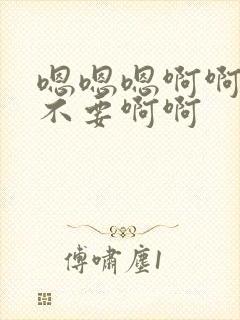 嗯嗯嗯啊啊
不要啊啊
傅啸尘1